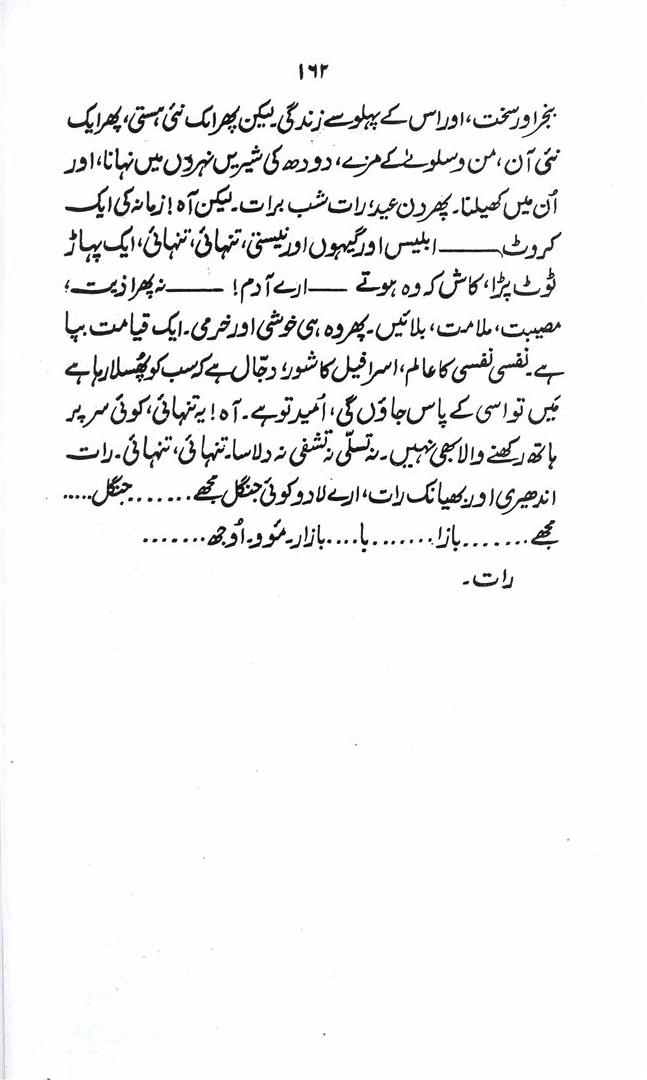 ۱۶۲
بنجر اور سخت، اور اس کے پہلو سے زندگی۔ لیکن پھر اک نئی ہستی، پھر ایک
نئی آن، من و سلوےٰ کے مزے، دودھ کی شیریں نہروں میں نہانا، اور
اُن میں کھیلنا۔ پھر دن عید، رات شب برات۔ لیکن آہ! زمانہ کی ایک
کروٹ ——— ابلیس اور گیہوں اور نیستی، تنہائی، تنہائی، ایک پہاڑ
ٹوٹ پڑا، کاش کہ وہ ہوتے —— ارے آدم! ——— نہ پھر اذیت؛
مصیبت، ملامت، بلائیں۔ پھر وہ ہی خوشی اور خرمی۔ ایک قیامت بپا
ہے۔ نفسی نفسی کا عالم، اسرافیل کا شور؛ دجّال ہے کہ سب کو پھُسلا رہا ہے
مَیں تو اسی کے پاس جاؤں گی، اُمید تو ہے۔ آہ! یہ تنہائی، کوئی سر پر
ہاتھ رکھنے والا بھی نہیں۔ نہ تسلّی نہ تشفی نہ دلاسا۔ تنہائی، تنہائی۔ رات
اندھیری اور بھیانک رات، ارے لادو کوئی جنگل مجھے....... جنگل.....
مجھے....... بازا....... با.... بازار۔ مُوو۔ اُوجھ.......
رات۔